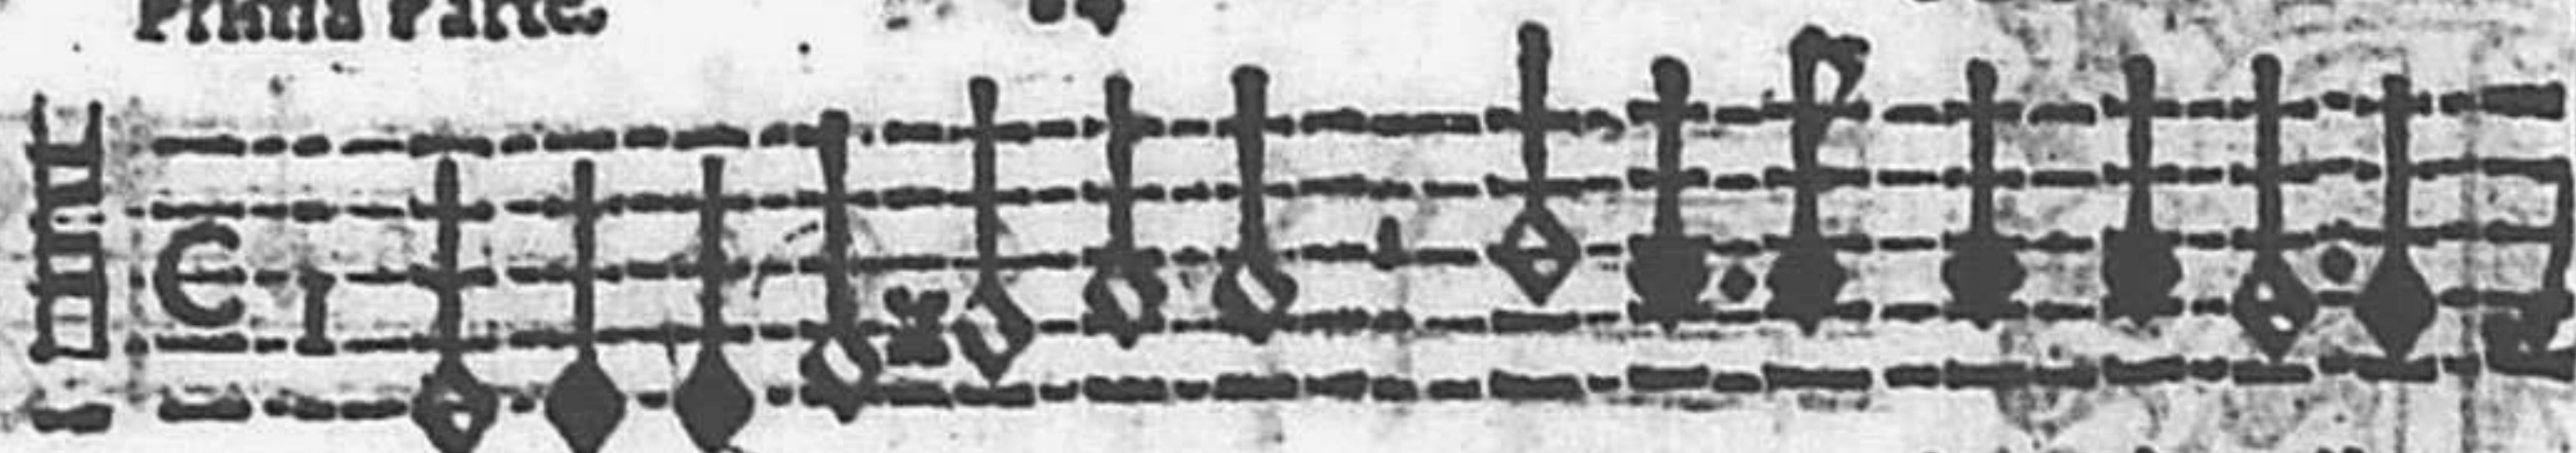 Prima Parte.